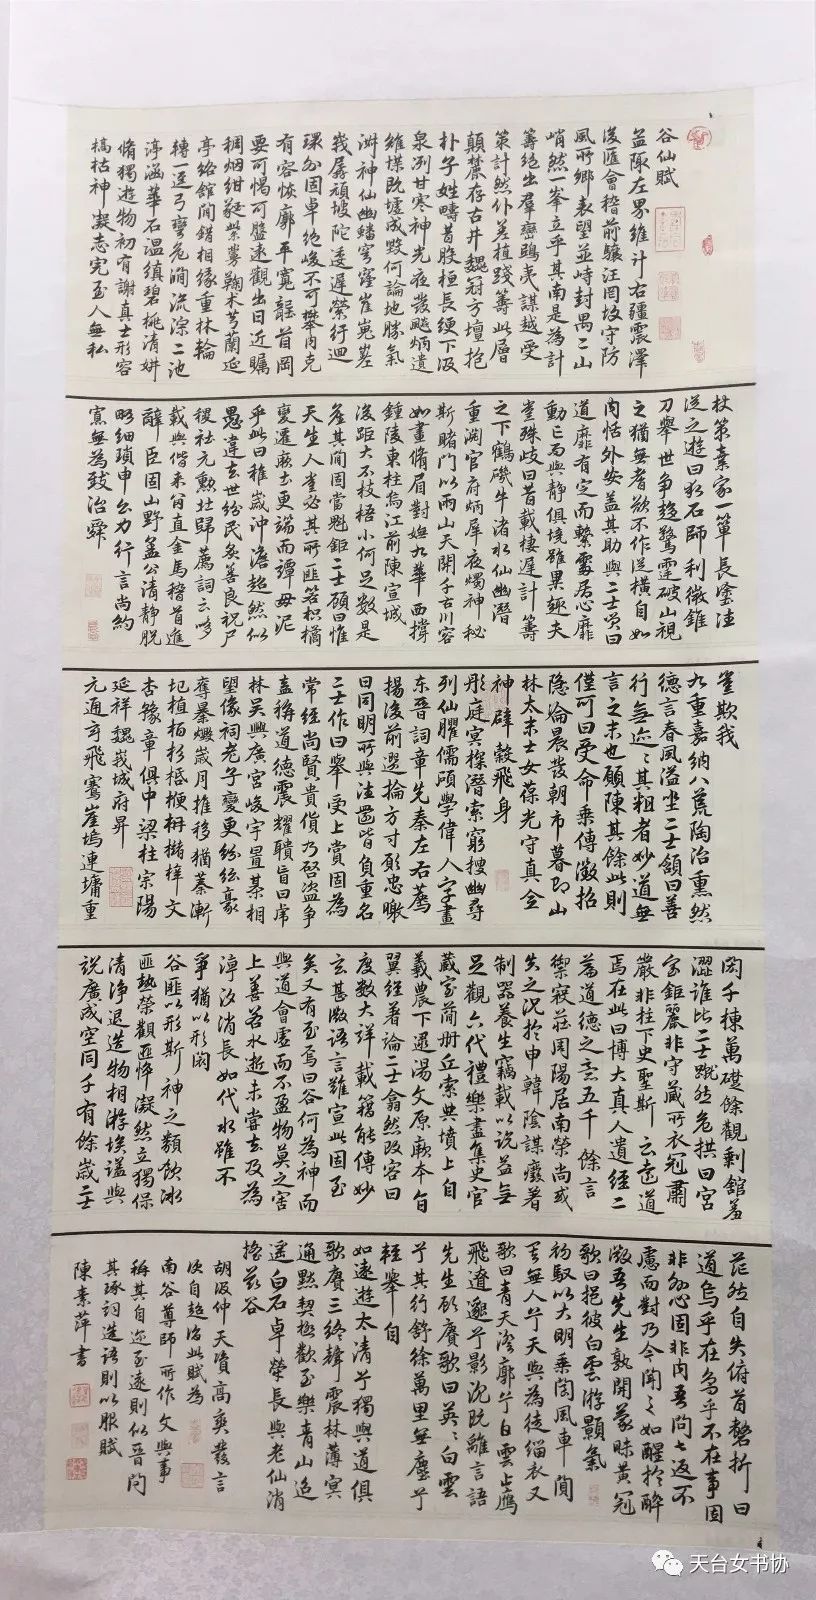 谷仙賦
益陬左界維計右疆震澤
後匯會稽前驤汪罔攻守防
風所鄉表望並峙封禺二山
峭然一峯立乎其南是為計
籌絕出羣巒鴟夷謀越受
策計然仆善植踐籌此層
顛麓存古井魏冠方壇抱
朴子姓疇昔股桓長綆下汲
泉冽甘寒神光夜發颷炳遺
維堞既墟成毀何論地勝氣
淋神仙幽蟠穹窪崔嵬
峩孱頑坡陀逶遲縈行迴
環外固卓絕峻不可攀內克
有容恢廓平寬龍首岡
要可憩可盤遠觀出日近矚
稠烟紺縈術芎蘭延
亭絡館間錯相緣重林輪
轉一逕弓彎危澗流淙二池
渟涵華石溫縝碧桃清妍
脩獨遊物初有謝真士形容
槁枯神凝志完至人無私
杖策棄家一簞長往
從之遊曰石師利徵錐
刀舉世爭趨驚霆破山視
之猶無者欲不作從橫自如
內怙外安蓋其助與二士曰
道靡有定而繫靡居心靡
動已而與靜俱境雖果趣夫
豈殊歧曰昔載棲遲計籌
之下鶴磯牛渚水仙幽潛
重淵官府炳犀夜燭神秘
斯賭門以兩山天開千古川容
如畫脩眉對嫵九華西撐
鍾陵東柱烏江前陳宣城
後距大不枝梧小何足數是
焉其間固當魁鉅二士顧曰惟
天生人豈必其所匪笤枳橘
褒遷厥土更端而譚毋泥
乎此曰稚歲沖澹超然似
愚違去世紛民炙善良祝尸
稷社元勲北歸薦詞云吵
載與偕來翁直金馬稽首進
辭臣固山野蓋公清靜脫
略細瑣申公力行言尚約
寡無為致治舜
豈欺我
九重嘉納八荒陶冶熏然
德言春風溢坐二士頷曰善
行無迹迹其粗者妙道無
言言之末也願陳其餘此則
僅可曰受命乘傳徵招
隱淪晨發朝市暮即山
林太末士女葆光守真全
神辟穀飛身
彤庭冥探潛索窮搜幽尋
列仙臞儒碩學偉人字畫
東晉詞章先秦左右薦
揚後前選掄方寸罄忠曒
日同明所與法罍皆負重名
二士作曰舉受上賞固為
常經尚賢貴貨乃啓盜爭
盍稱道德震耀聵盲曰席
林吳興廣宮峻宇置棊相
望像祠老子變更紛紜豪
奪暴燬歲月推移猶蓁漸
圮植栢杉梓文
杏豫章俱中梁柱宗陽
延祥魏峩城府昇
元通玄飛騫崖塢連墉重
岡千棟萬礎餘觀剩館羞
澀誰比二士蹴然危拱曰宮
宇鉅麗非守藏所衣冠肅
嚴非柱下史聖斯云遠道
焉在此曰博大真人遺經二
篇道德之意五千餘言
禦寇莊周陽居南榮尚或
失之況於申韓陰謀癈著
制器養生竊載以說益無
足觀六代禮樂盡集史官
藏室蕳册丘索典墳上自
羲農下逮湯文原厥本旨
翼經著論二士翕然改容曰
度數大詳載籍能傳妙
玄甚微語言難宣此固至
矣又有至焉曰谷何為神而
與道會虛而不盈物莫之害
上善若水逝未嘗去及為
漳汐消長如代水雖不
爭猶以形閡
谷匪以形斯神之類飲冰
匪熱榮觀匪悴凝然立獨保
清淨退造物相游埃壒與
說廣成空同千有餘歲二士
茫然自失俯首罄折曰
道烏乎在烏乎不在事固
非外心固非內吾問七返不
慮而對乃今聞之如醒於醉
微吾先生孰開蒙昧黃冠
歌曰挹彼白雲游顥氣
礿馭以大明乘閶風車閴
其無人兮天與為徒緇衣又
歌曰青天澄廓兮白雲止鷹
飛遼邈兮影沈既離言語
先生欣賡歌曰英英白雲
兮其行舒徐萬里無塵兮
輕舉自
如遠遊太清兮獨與道俱
歌賡三終聲震林薄冥
通默契極歡至樂青山迢
遥白石卓犖長與老仙消
搖茲谷
胡汲仲天資高爽發言
便自超詣此賦為
南谷尊師所作文與事
稱其自迩至遠則似晉問
其琢詞造語則似服賦
陳素萍書
天台女书协